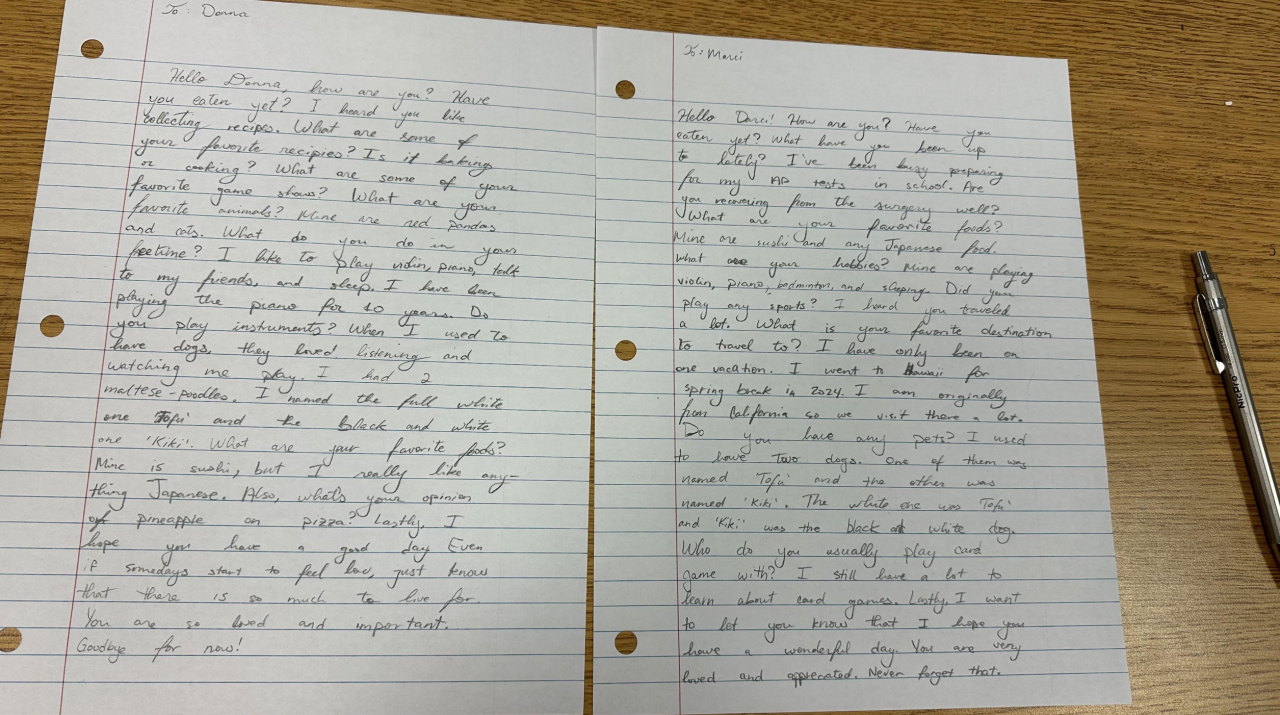 To: Donna
Hello Donna, how are you? Have
you eaten yet? I heard you like
collecting recipes. What are some of
your favorite recipies? Is it baking
or cooking? What are some of your
favorite game shows? What are your
favorite animals? Mine are red pandas
and cats. What do you do in your
freetime? I like to play violin, piano, talk
to my friends, and sleep. I have been
playing the piano for 10 years. Do
you play instruments? When I used to
have dogs, they loved listening and
watching me play. I had 2
maltese-poodles. I named the full white
one Tofu and the black and white
one 'Kiki'. What are your favorite foods?
Mine is sushi, but I really like any-
thing Japanese. Also, what's your opinion
of pineapple on pizza? Lastly, I
hope you have a good day Even
if somedays start to feel low, just know
that there is so much to live for.
You are so loved and important.
Goodbye for now!
To: Marci
Hello Darci! How are you? Have you
eaten yet? What have you been up
to lately? I've been busy preparing
for my AP tests in school. Are
you recovering from the surgery well?
What are your favorite foods?
Mine are sushi and any Japanese food.
what are your hobbies? Mine are playing
violin, piano, badminton, and sleeping. Did you
play any sports? I heard you traveled
a lot. What is your favorite destination
to travel to? I have only been on
one vacation. I went to Hawaii for
spring break in 2024. I am originally
from California so we visit there a lot.
Do you have any pets? I used
to have two dogs. One of them was
named 'Tofu' and the other was
named 'Kiki'. The white one was 'Tofu'
and 'Kiki' was the black white dog.
Who do you usually play card
game with? I still have a lot to
learn about card games. Lastly, I want
to let you know that I hope you
have a wonderful day. You are very
loved and appreciated. Never forget that.
NicPro